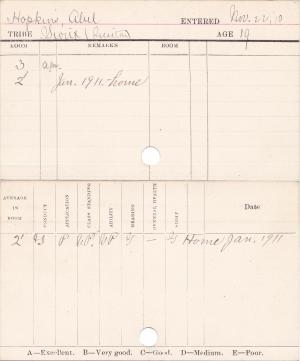 Hopkins, Abel ENTERED Nov. 22, 10
TRIBE Sioux AGE 19
ROOM REMARKS ROOM
3
2 Jan. 1911 - home
AVERAGE IN ROOM CONDUCT APPLICATION CLASS STANDING ABILITY HEARING GENERAL HEALTH SIGHT Date
2 P V.P. V.P. G — G Home Jan. 1911
A—Excellent. B—Very good. C—Good. D—Medium. E—Poor.